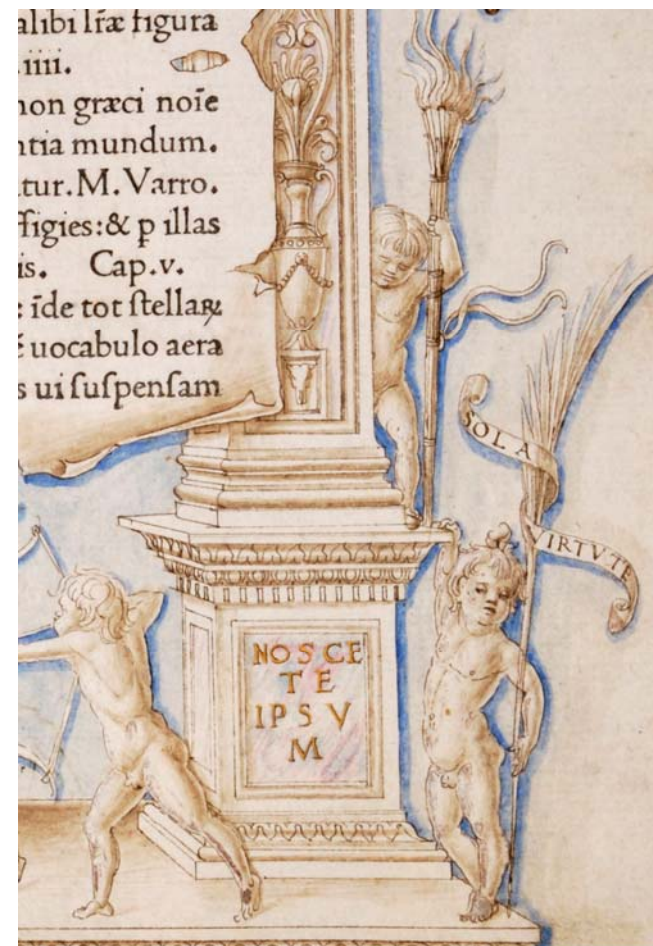 alibi lr̃æ figura
.iiii.
non græci noīe
ntia mundum.
tur. M. Varro.
ffigies: & p illas
is. Cap.v.
: īde tot ſtellaꝝ
uocabulo aera
s ui ſuſpenſam
SOLA
VIRTVTE
NOSCE
TE
IPSV
M